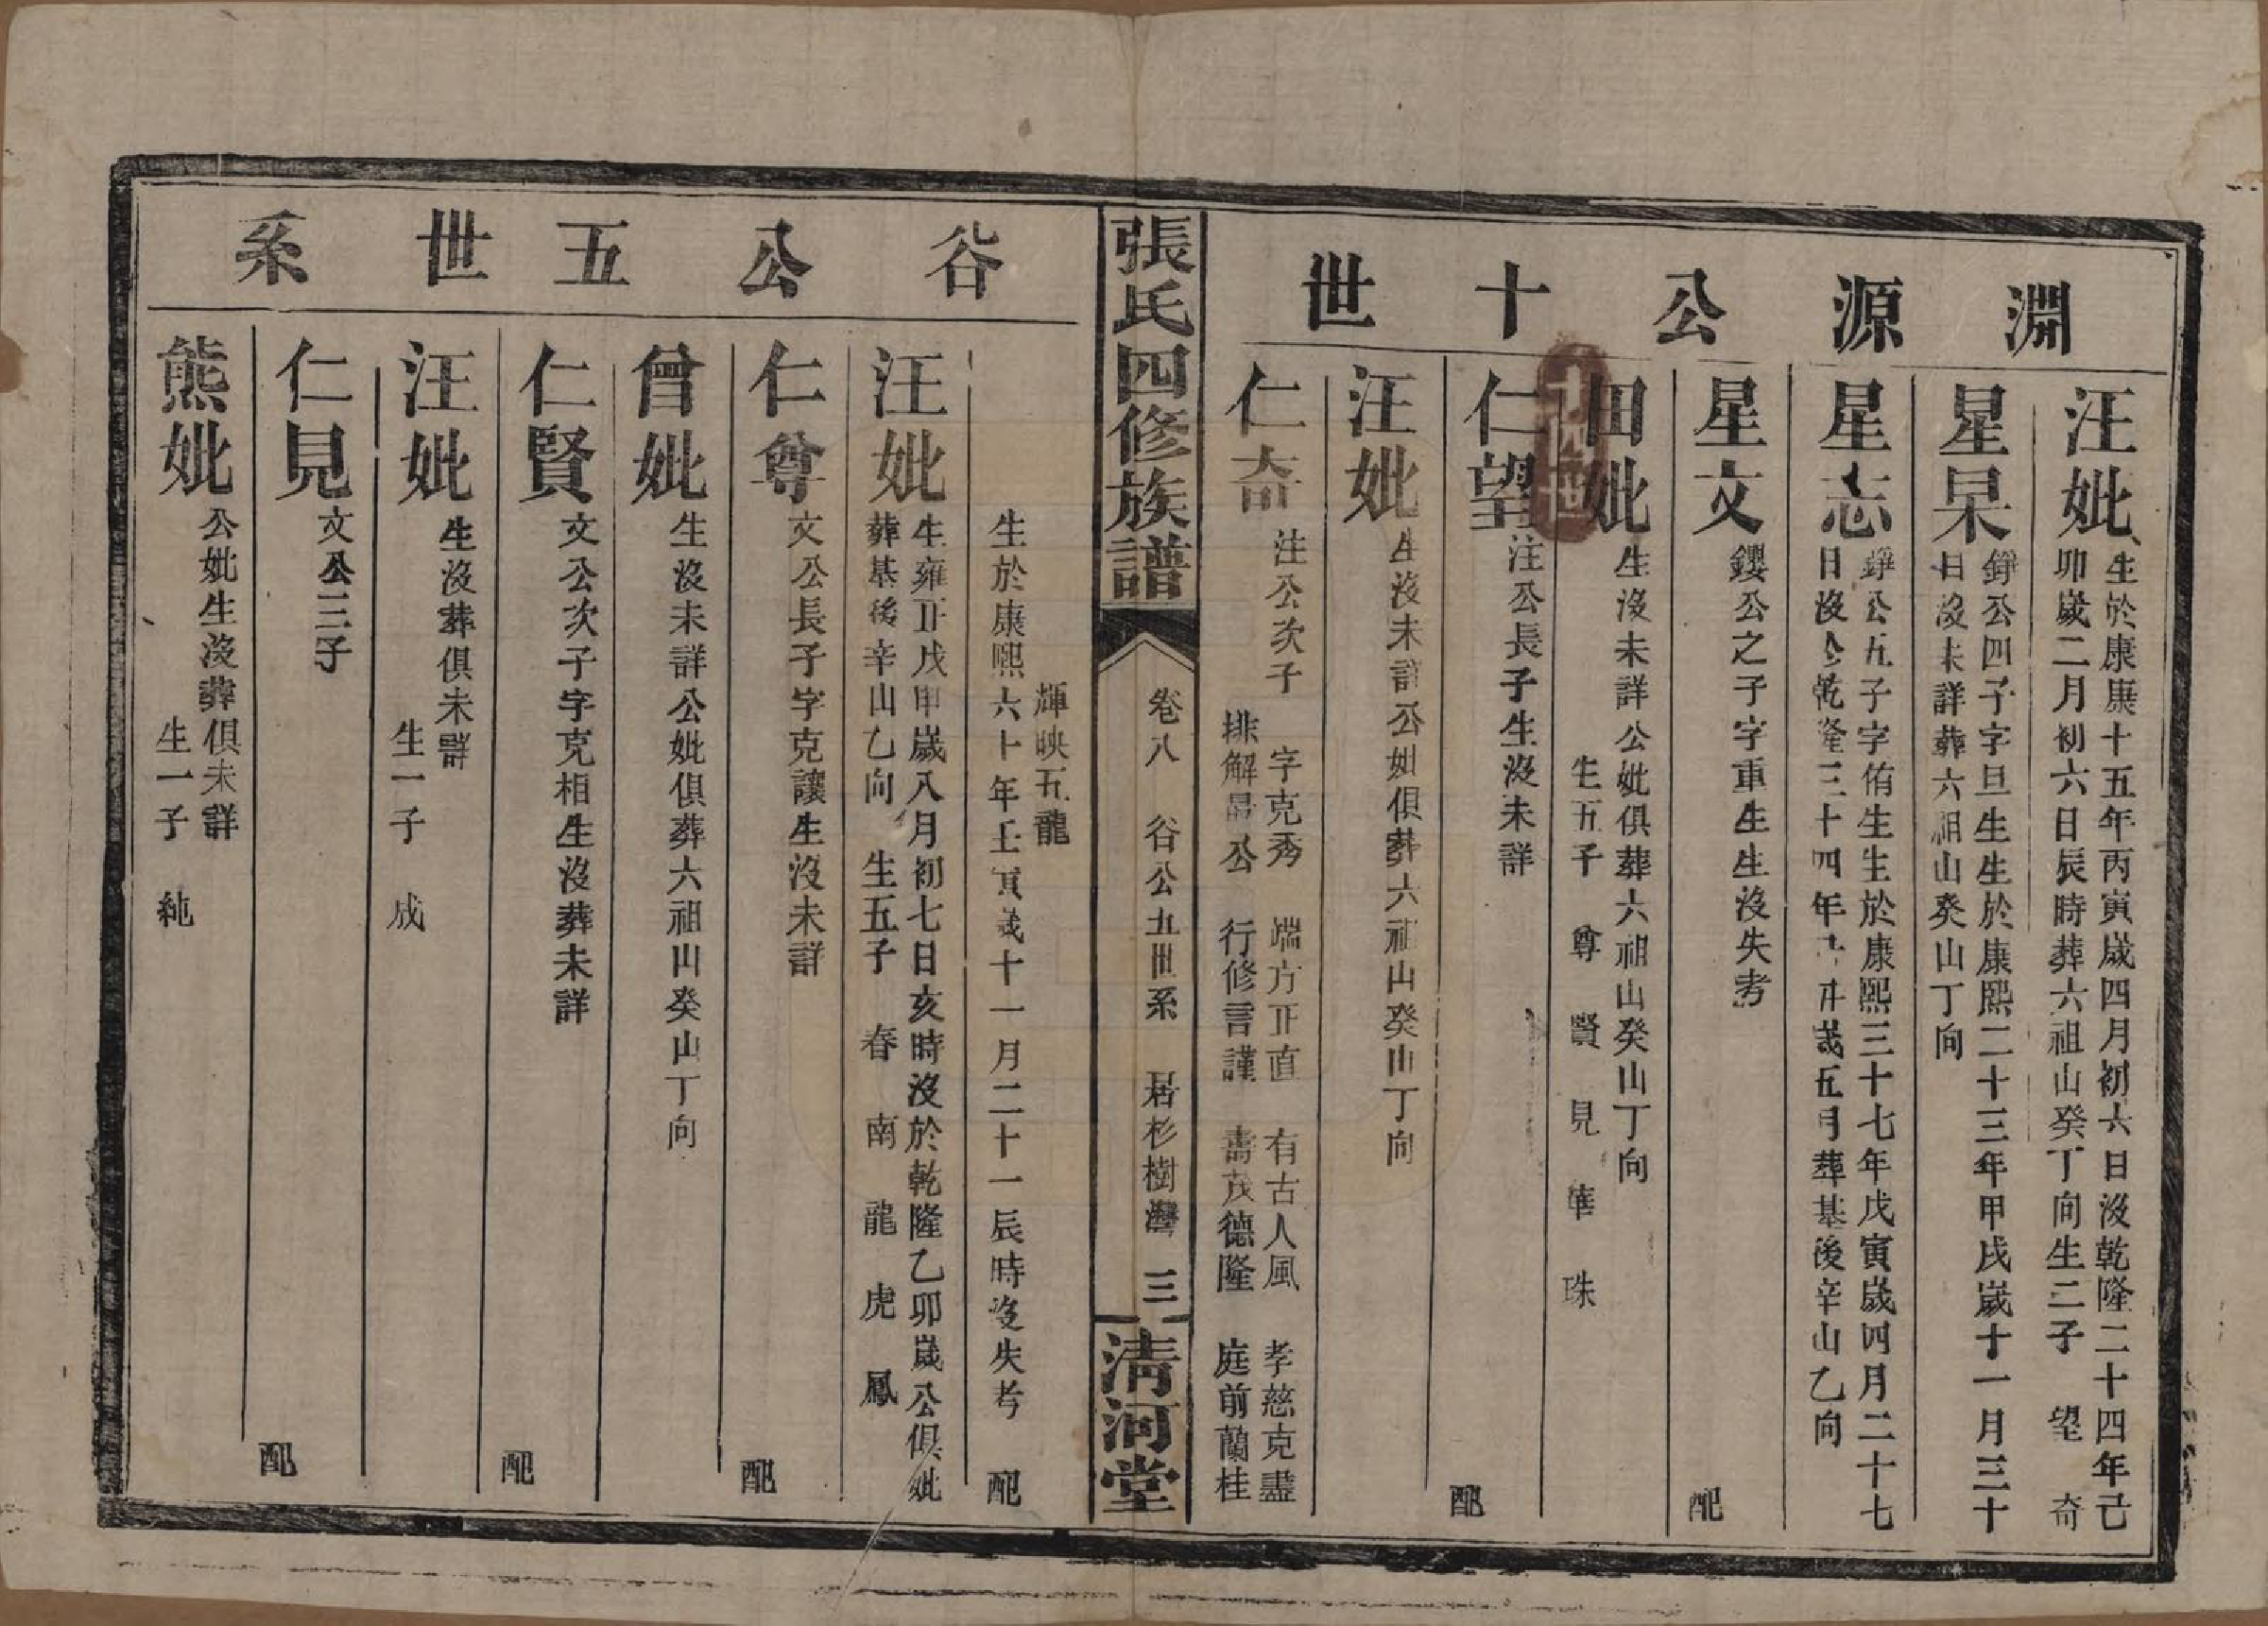 淵源公十世
汪妣
生於康康十五年丙寅歲四月初六日沒乾隆二十四年己
卯歲二月初六日辰時葬六祖山癸丁向生二子 望 奇
星杲
錚公四子字旦生生於康熙二十三年甲戌歲十一月三十
日沒未詳葬六祖山癸山丁向
星志
錚公五子字侑生生於康熙三十七年戊寅歲四月二十七
日沒於乾隆三十四年 歲五月葬基後辛山乙向
星文
鑁公之子字重生生沒失考 配
田妣
生沒未詳公妣俱葬六祖山癸山丁向
生五子 尊 賢 見 華 珠
十四世
仁望
注公長子生沒未詳 配
汪妣
生沒未詳公妣俱葬六祖山癸山丁向
仁奇
注公次子 字克秀 端方正直 有古人風 孝慈克盡
排解品公 行修言謹 壽茂德隆 庭前蘭桂
張氏四修族譜
卷八 谷公五世系 居杉樹灣 三
清河堂
谷公五世系
輝映五龍
生於康熙六十年壬寅歲十一月二十一辰時沒失考 配
汪妣
生雍正戊申歲八月初七日亥時沒於乾隆乙卯歲公俱妣
葬基後辛山乙向 生五子 春 南 龍 虎 鳳
仁尊
文公長子字克讓生沒未詳 配
曾妣
生沒未詳公妣俱葬六祖山癸山丁向
仁賢
文公次子字克相生沒葬未詳 配
汪妣
生沒葬俱未詳
生一子 成
仁見
文公三子 配
熊妣
公妣生沒葬俱未詳
生一子 純